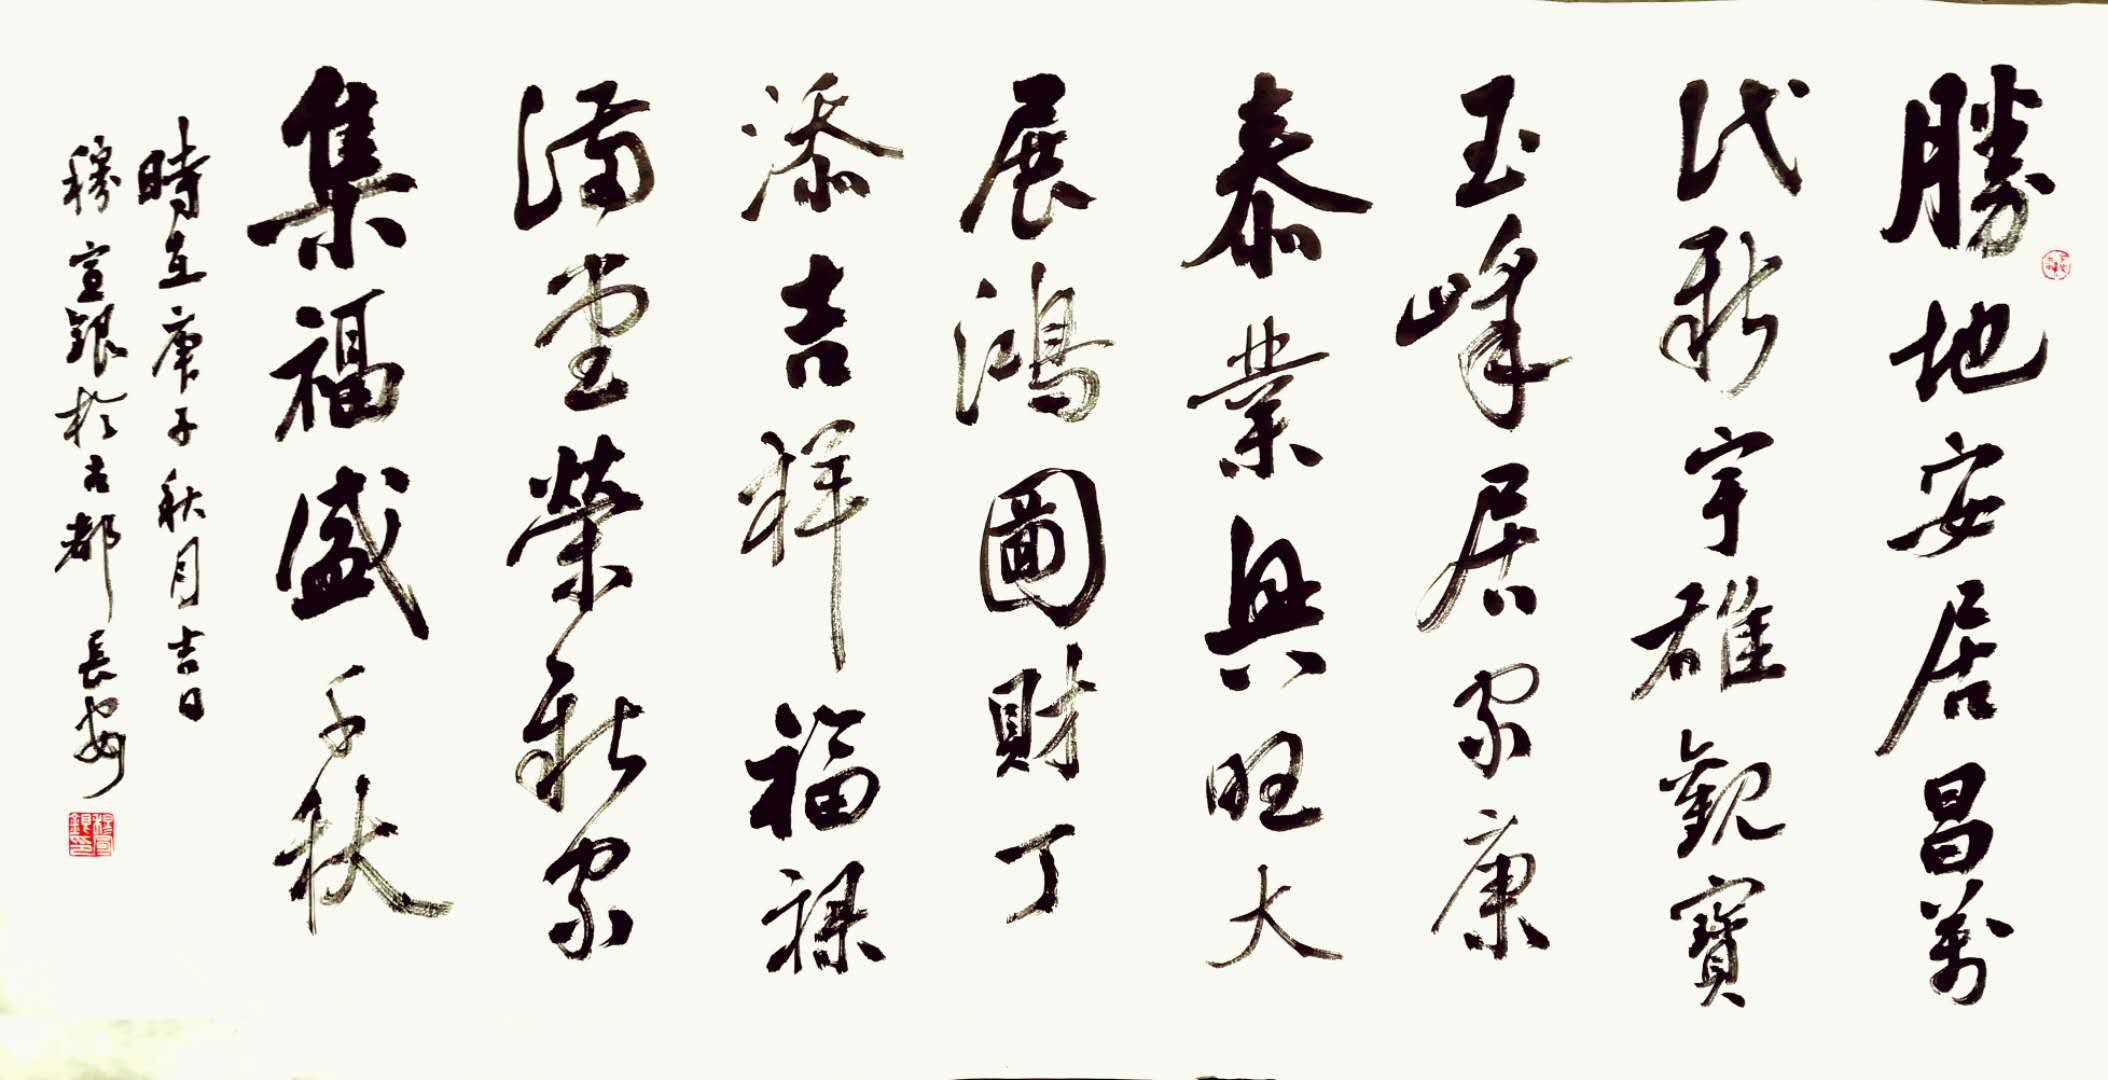 勝地安居昌萬
代新宇雄觀寶
玉峰居家康
泰業興旺大
展鴻圖財丁
添吉祥福祿
滿堂榮新家
集福盛千秋
時在庚子秋月吉日
穆宣銀於古都長安